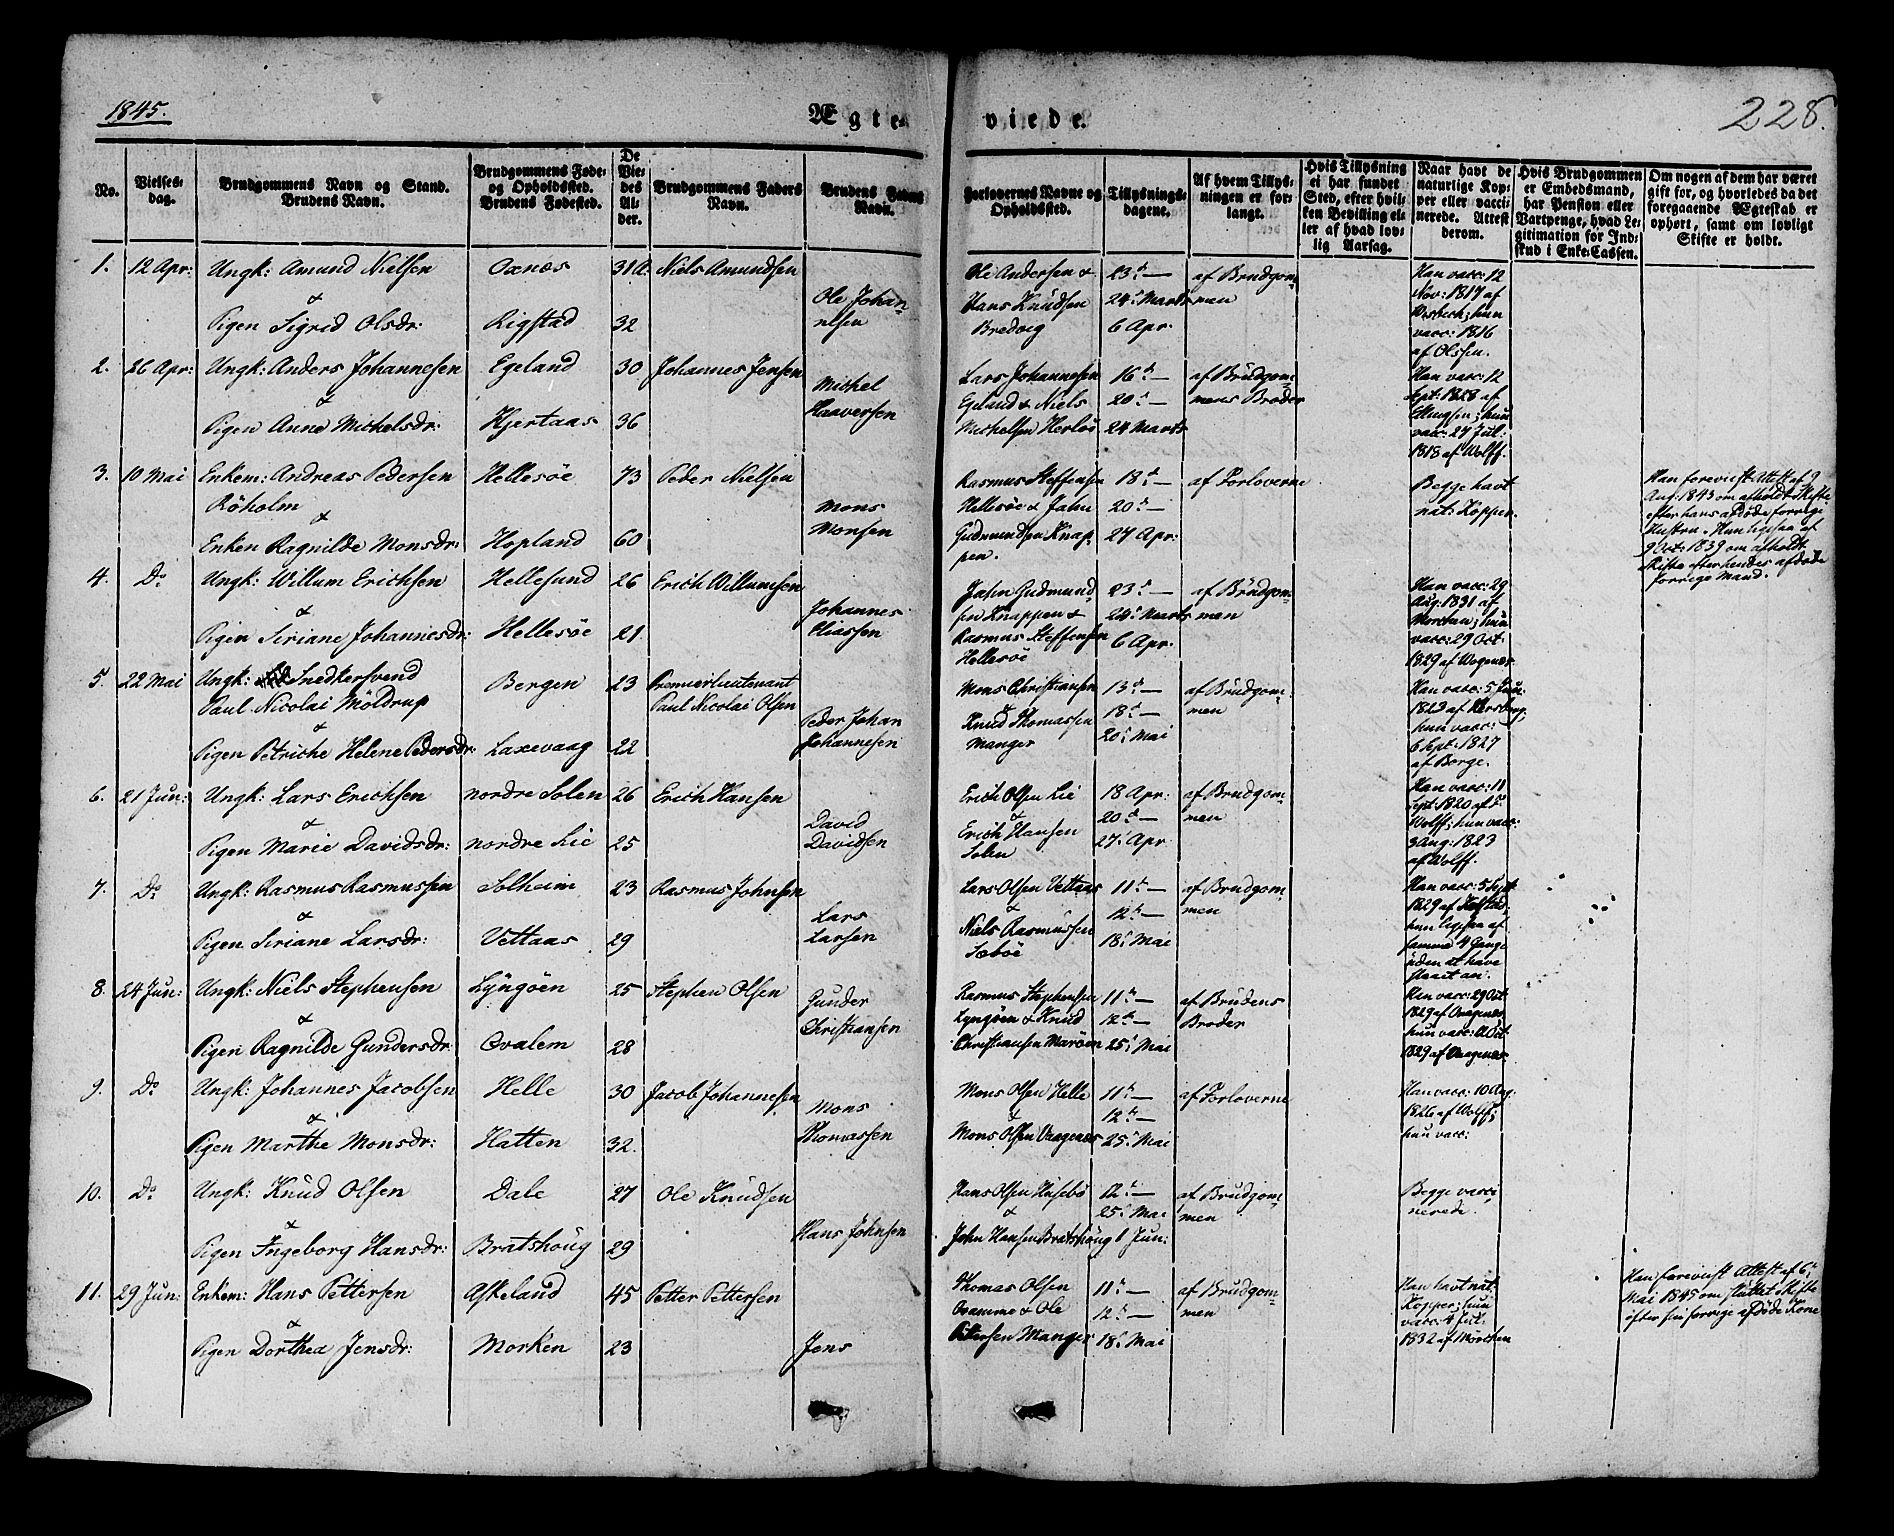 1845.
Ægte-
viede.
228.
No.
Vielses-
dag.
Brudgommens Navn og Stand.
Brudens Navn.
Brudgommens Føde-
og Opholdssted.
Brudens Fødested.
De
Vie-
des
Al-
der.
Brudgommens Faders
Navn.
Brudens Faders
Navn.
Forlovernes Navne og
Opholdssted.
Tillysnings-
dagene.
Af hvem Tillys-
ningen er for-
langt.
Hvis Tillysning
ei har fundet
Sted, efter hvil-
ken Bevilling el-
ler af hvad lov-
lig Aarsag.
Naar havt de
naturlige Kop-
per eller vacci-
nerede. Attest
derom.
Hvis Brudgommen
er Embedsmand,
har Pension eller
Vartpenge, hvad Le-
gitimation for Ind-
skud i Enke-Cassen.
Om nogen af dem har været
gift før, og hvorledes da det
foregaaende Ægteskab er
ophørt, samt om lovligt
Skifte er holdt.
1. 12 Apr: Ungk: Amund Nielsen Oxnæs 31 A. Niels Amundsen
&
Pigen Sigrid Olsdr: Rigstad 32
Ole Johan-
nesen
Ole Andersen &
Hans Knudsen
Bredvig
23de —
24de Marts
6 Apr.
af Brudgom-
men
Han vacc: 12
Nov: 1817 af
hun
vacc: 1816
af Olssen.
2. 26 Apr: Ungk: Anders Johannesen Egeland 30 Johannes Jensen
&
Pigen Anne Michelsdr: Hjertaas 36
Michel
Haaversen
Lars Johannesen
Egeland & Niels
Michelsen Herlöe
16de —
20de —
24 Marts
af Brudgom-
mens Broder
Han vacc: 12
Sept: 1828 af
Ellingsen; hun
vacc: 27 Jul:
1818 af Wolff.
3. 10 Mai Enkem: Andreas Pedersen Hellesöe 73 Peder Nielsen
Röholm
&
Enken Ragnilde Monsdr: Hopland 60
Mons
Monsen
Rasmus Steffensen
Hellesöe & Jahn
Gudmundsen Knap-
pen.
18de —
20de —
27 Apr:
af Forloverne
Begge havt
nat: Kopper.
Han forevist Attest af 9
Aug: 1843 om afholdt Skifte
efter hans afdöde forrige
Hustru. Hun ligesaa af
9 Oct: 1839 om afholdt
Skifte efter hendes afdöde
forrige Mand.
4. Do Ungk: Willum Erichsen Hellesund 26 Erich Willumsen
&
Pigen Siriane Johannesdr: Hellesöe 21.
Johannes
Eliassen
Jahn Gudmund-
sen Knappen &
Rasmus Steffensen
Hellesöe
23de —
24de Marts
6 Apr:
af Brudgom-
men
Han vacc: 29
Aug: 1831 af
hun
vacc: 29 Oct
1829 af Wagenes
5. 22 Mai Ungk: Snedkersvend Bergen 23 Premierlieutenant
Paul Nicolai Möldrup Paul Nicolai Olsen
&
Pigen Petriche Helene Pedersdr: Laxevaag 22
Peder Johan
Johannesen
Mons Christiansen
&
Knud Thomassen
Manger
13de —
18de —
20de Mai
af Brudgom-
men
Han vacc: 5 Jun:
1823 af
hun vacc:
6 Sept: 1827
af Borge.
6. 21 Jun: Ungk: Lars Erichsen nordre Solen 26 Erich Hansen
&
Pigen Marie Davidsdr: nordre Lie 25
David
Davidsen
Erich Olsen Lie
&
Erich Hansen
Solen
18 Apr:
20de —
27de Apr
af Brudgom-
men
Han vacc: 11
Sept: 1820 af
Wolff; hun vacc:
3 Aug: 1823
af Wolff.
7. Do Ungk: Rasmus Rasmussen Solheim 23 Rasmus Johnsen
&
Pigen Siriane Larsdr: Vettaas 29
Lars
Larsen
Lars Olsen Vettaas
&
Niels Rasmussen
Sæböe
11te —
12te —
18de Mai
af Brudgom-
men
Han vacc: 5 Sept
1829 af
hun ligesaa af
samme 4 Gange
uden at have
slaaet an.
8. 24 Jun: Ungk: Niels Stephensen Lyngöen 25 Stephen Olsen
&
Pigen Ragnilde Gundersdr Qvalem 28
Gunder
Christiansen
Rasmus Stephensen
Lyngöen & Knud
Christiansen Maröen
11te —
12te —
25de Mai
af Brudens
Broder
Han vacc: 29 Oct
1829 af Vaagenes
hun vacc: Oct
1829 af Vaagenes
9. Do Ungk: Johannes Jacobsen Helle 30 Jacob Johannesen
&
Pigen Marthe Monsdr: Hatten 32.
Mons
Thomassen
Mons Olsen Helle
&
Mons Olsen Vaagenes
11te —
12te —
25de Mai
af Forloverne
Han vacc: 10 Aug:
1826 af Wolff;
hun vacc:
10. Do Ungk: Knud Olsen Dale 27 Ole Knudsen
&
Pigen Ingeborg Hansdr: Bratshoug 29
Hans Johnsen
Hans Olsen Husebö
&
John Hansen Bratshoug
12te —
25de Mai
1 Jun:
af Brudgom-
men
Begge vacci-
nerede.
11. 29 Jun: Enkem: Hans Pettersen Askeland 45 Petter Pettersen
&
Pigen Dorthea Jensdr: Morken 23
Jens
Thomas Olsen
Qvamme & Ole
Petersen Manger
11te —
12te —
18de Mai
af Brudgom-
men
Han havt nat.
Kopper; hun
vacc: 4 Jul.
1832 af Morthen
Han forevist Attest af 6te
Mai 1845 om sluttet Skifte
efter sin forrige afdöde Kone